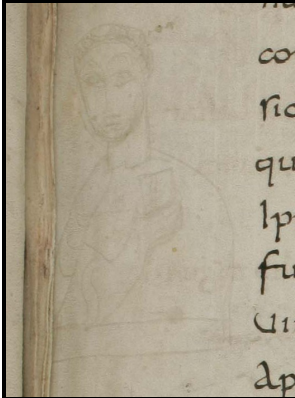 co
ric
qu
Ip
fu
Ui
Ap